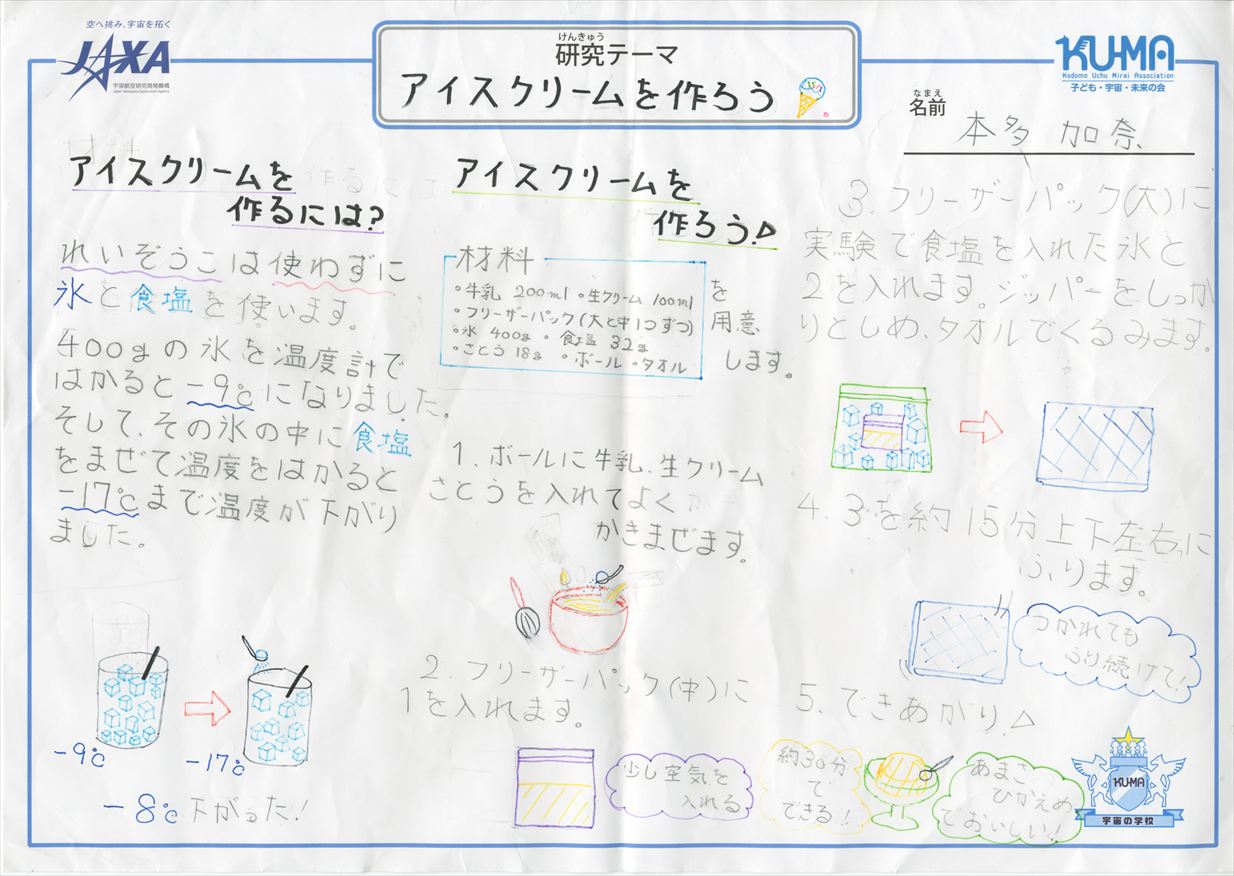 空へ挑み、宇宙を拓く
JAXA
宇宙航空研究開発機構
Japan Aerospace Exploration Agency
けんきゅう
研究テーマ
アイスクリームを作ろう
KU-MA
Kodomo Uchu Mirai Association
子ども・宇宙・未来の会
なまえ
名前
本多 加奈
アイスクリームを
作るには?
れいぞうこは使わずに
氷と食塩を使います。
400gの氷を温度計で
はかると-9℃になりました。
そして、その氷の中に食塩
をまぜて温度をはかると
-17℃まで温度が下がり
ました。
-9℃
-17℃
-8℃下がった!
アイスクリームを
作ろう!
材料
・牛乳 200ml ・生クリーム 100ml
・フリーザーパック(大と中1つずつ)
・氷 400g ・食塩 32g
・さとう 18g ・ボール ・タオル
を
用意
します。
1、ボールに牛乳、生クリーム
さとうを入れてよく
かきまぜます。
2、フリーザーパック(中)に
1を入れます。
少し空気を
入れる
3、フリーザーパック(大)に
実験で食塩を入れた氷と
2を入れます。ジッパーをしっか
りとしめ、タオルでくるみます。
4、3を約15分上下左右に
ふります。
つかれても
ふり続けて!
5、できあがり!
約30分
で
できる!
あまさ
ひかえめ
でおいしい!
KU-MA
宇宙の学校